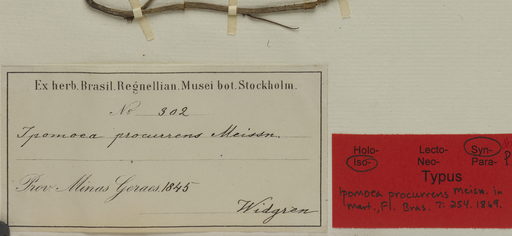 Ex herb. Brasil. Regnellian. Musei bot. Stockholm.
No 302
Ipomoea procurrens Meissn.
Prov. Minas Geraes 1845
Widgren
Holo- Lecto- Syn-
Iso- Neo- Para- ?
Typus
Ipomoea procurrens Meisn. in
Mart., Fl. Bras. 7: 254. 1869.